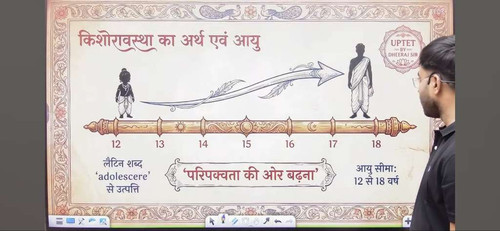 किशोरावस्था का अर्थ एवं आयु
UPTET
BY
DHEERAJ SIR
12 13 14 15 16 17 18
लैटिन शब्द
'adolescere'
से उत्पत्ति
'परिपक्वता की ओर बढ़ना'
आयु सीमा:
12 से 18 वर्ष